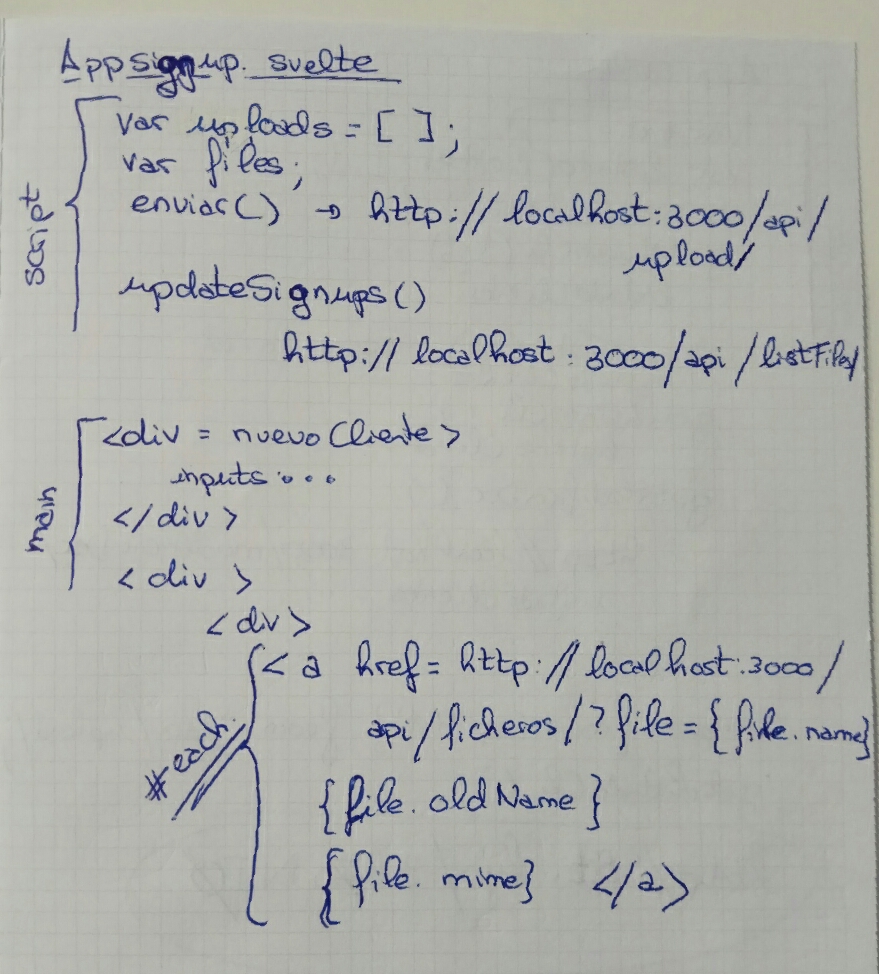 Appsignup.svelte
script
var uploads = [ ];
var files;
enviar() → http://localhost:3000/api/
upload/
updateSignups()
http://localhost:3000/api/listFiles/
main
<div = nuevoCliente>
inputs...
</div>
<div>
<div>
#each
<a href= http://localhost:3000/
api/ficheros/?file={file.name}
{file.oldName}
{file.mime} </a>